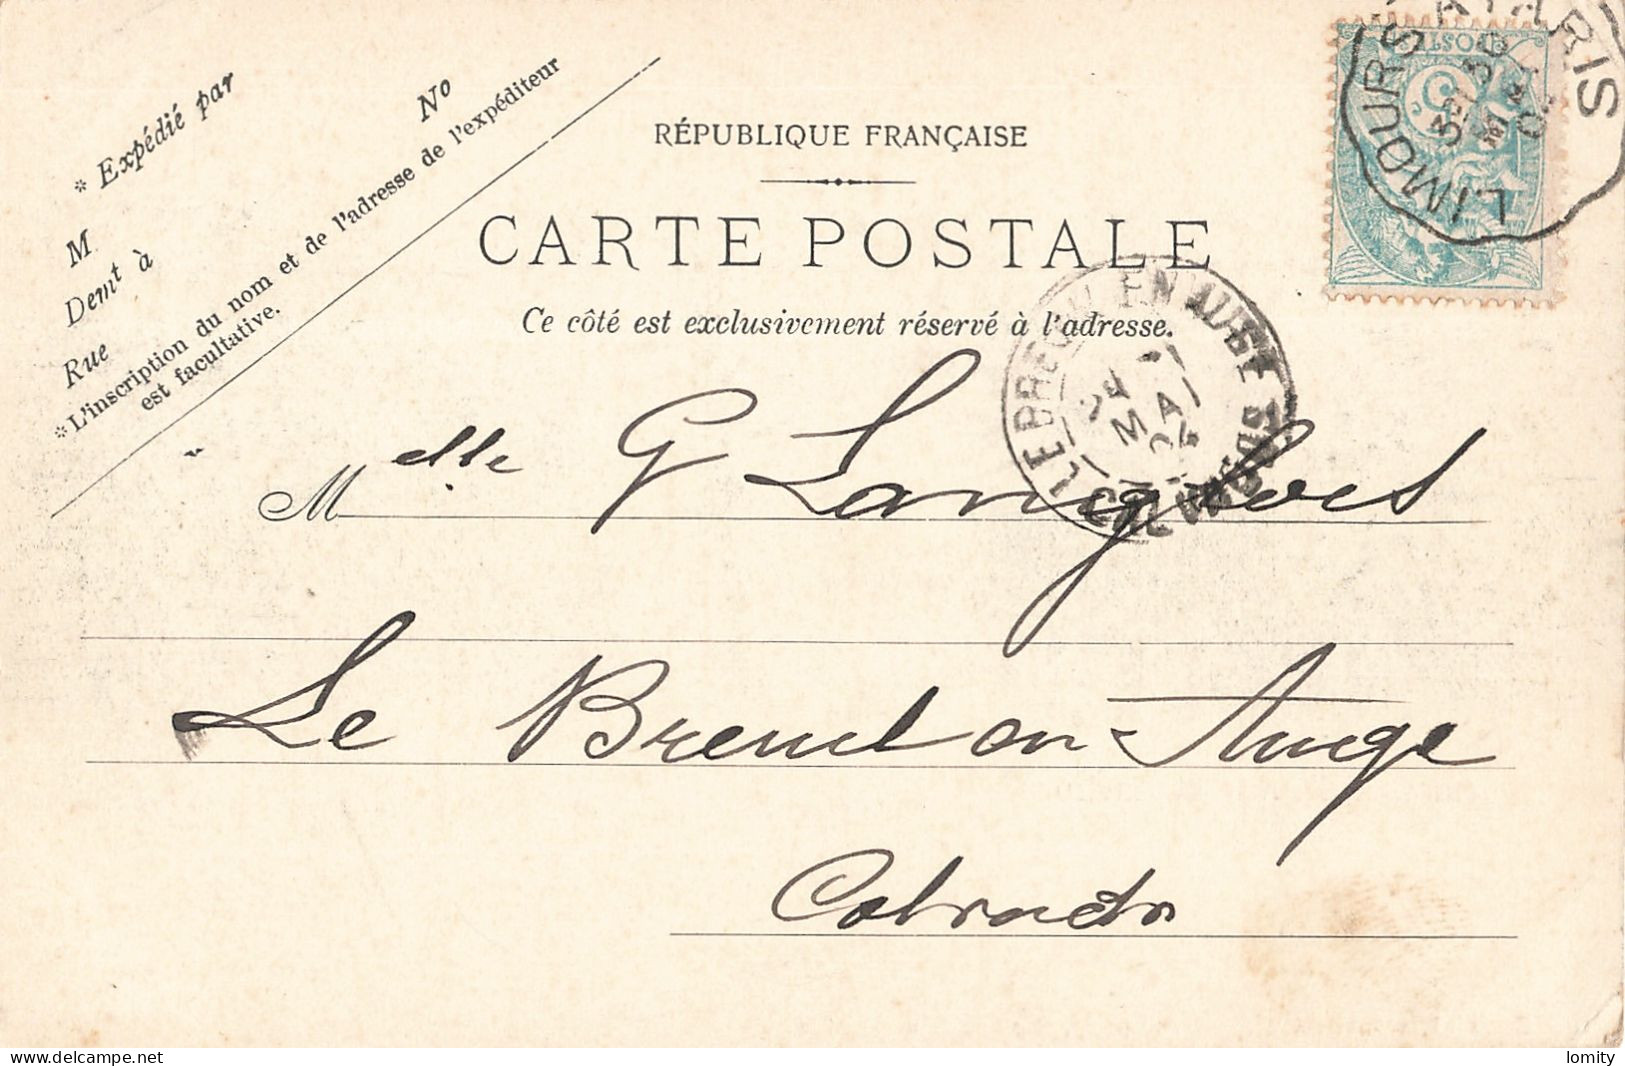 * Expédié par
N°
M
Demt à
Rue
*L'inscription du nom et de l'adresse de l'expéditeur
est facultative.
RÉPUBLIQUE FRANÇAISE
CARTE POSTALE
Ce côté est exclusivement réservé à l'adresse.
LIMOURS A PARIS
POSTES
5
LE BREUIL EN AUGE
MA
04
CALVADOS
Melle G Langlois
Le Breuil en-Auge
Calvados
delcampe.net
lomity